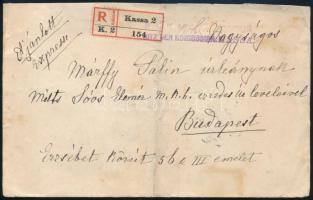 Ajánlott
expresse
R Kassa 2
K. 2 154
Nagyságos
Márffy Pálin úrleánynak
Soós Elemér m. k. eredes és levelével
Budapest
Erzsébet Körút 56 III emelet